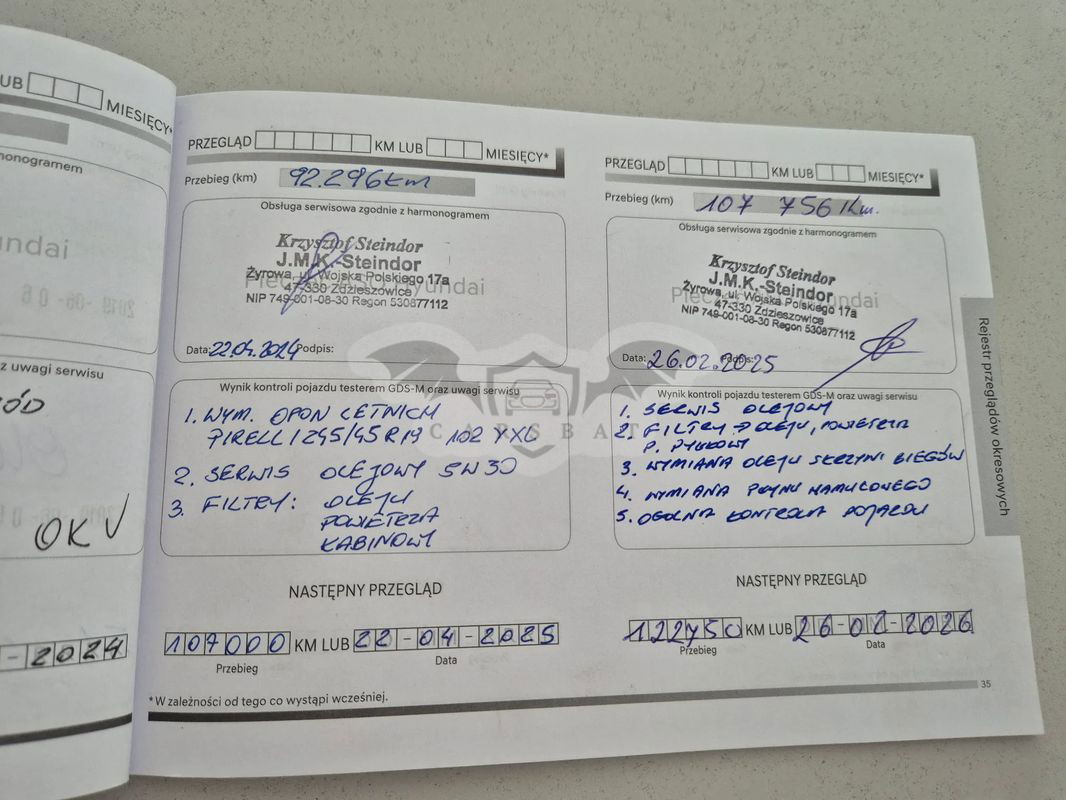 UB
MIESIĘCY*
nonogramem
undai
z uwagi serwisu
ÓD
OK
- 2024
PRZEGLĄD KM LUB MIESIĘCY*
Przebieg (km) 92.296km
Obsługa serwisowa zgodnie z harmonogramem
Krzysztof Steindor
J.M.K.-Steindor
Żyrowa, ul. Wojska Polskiego 17a
47-330 Zdzieszowice
NIP 749-001-08-30 Regon 530877112
Data: 22.04.2024 Podpis:
Wynik kontroli pojazdu testerem GDS-M oraz uwagi serwisu
1. WYM. OPON LETNICH
PIRELLI 245/45 R19 102 YXL
2. SERWIS OLEJOWY 5W30
3. FILTRY: OLEJU
POWIETRZA
KABINOWY
NASTĘPNY PRZEGLĄD
107000 KM LUB 22-04-2025
Przebieg Data
*W zależności od tego co wystąpi wcześniej.
PRZEGLĄD KM LUB MIESIĘCY*
Przebieg (km) 107 756 Km.
Obsługa serwisowa zgodnie z harmonogramem
Krzysztof Steindor
J.M.K.-Steindor
Żyrowa, ul. Wojska Polskiego 17a
47-330 Zdzieszowice
NIP 749-001-08-30 Regon 530877112
Data: 26.02.2025 Podpis:
Wynik kontroli pojazdu testerem GDS-M oraz uwagi serwisu
1. SERWIS OLEJOWY
2. FILTRY → OLEJU, POWIETRZA
P. PYŁKOWY
3. WYMIANA OLEJU SKRZYNI BIEGÓW
4. WYMIANA PŁYNU HAMULCOWEGO
5. OGÓLNA KONTROLA POJAZDU
NASTĘPNY PRZEGLĄD
122750 KM LUB 26-02-2026
Przebieg Data
35
Rejestr przeglądów okresowych
CARSBAT